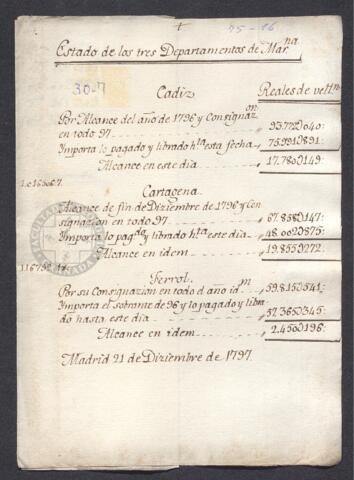 +
75-16
Estado de los tres Departamentos de Mar.na
30-7
Cadiz Reales de vell.n
Por Alcance del año de 1796 y Consignaz.on
en todo 97 93.772D040:
Importa lo pagado y librado h.ta esta fecha 75.991D891:
Alcance en este dia 17.780D149:
Cartagena
Alcance de fin de Diziembre de 1796 y Con
signazion en todo 97 67.858D147:
Importa lo pag.do y librado h.ta este dia 48.002D875:
Alcance en idem 19.855D272:
Ferrol
Por su Consignazion en todo el año id.m 59.815D541:
Importa el sobrante de 96 y lo pagado y libra
do hasta este dia 57.365D345:
Alcance en idem 2.450D196:
Madrid 21 de Diziembre de 1797.